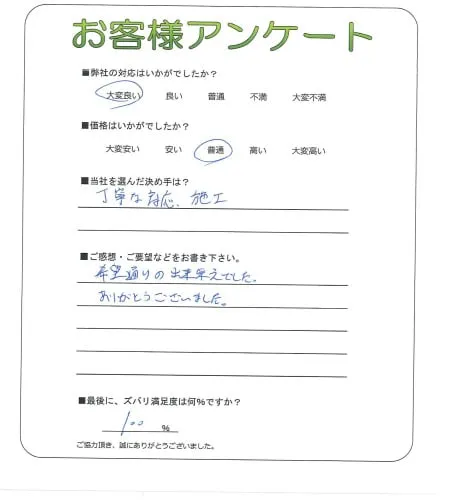 お客様アンケート
■弊社の対応はいかがでしたか?
大変良い 良い 普通 不満 大変不満
■価格はいかがでしたか?
大変安い 安い 普通 高い 大変高い
■当社を選んだ決め手は?
丁寧な対応、施工
■ご感想・ご要望などをお書き下さい。
希望通りの出来栄えでした。
ありがとうございました。
■最後に、ズバリ満足度は何%ですか?
100 %
ご協力頂き、誠にありがとうございました。